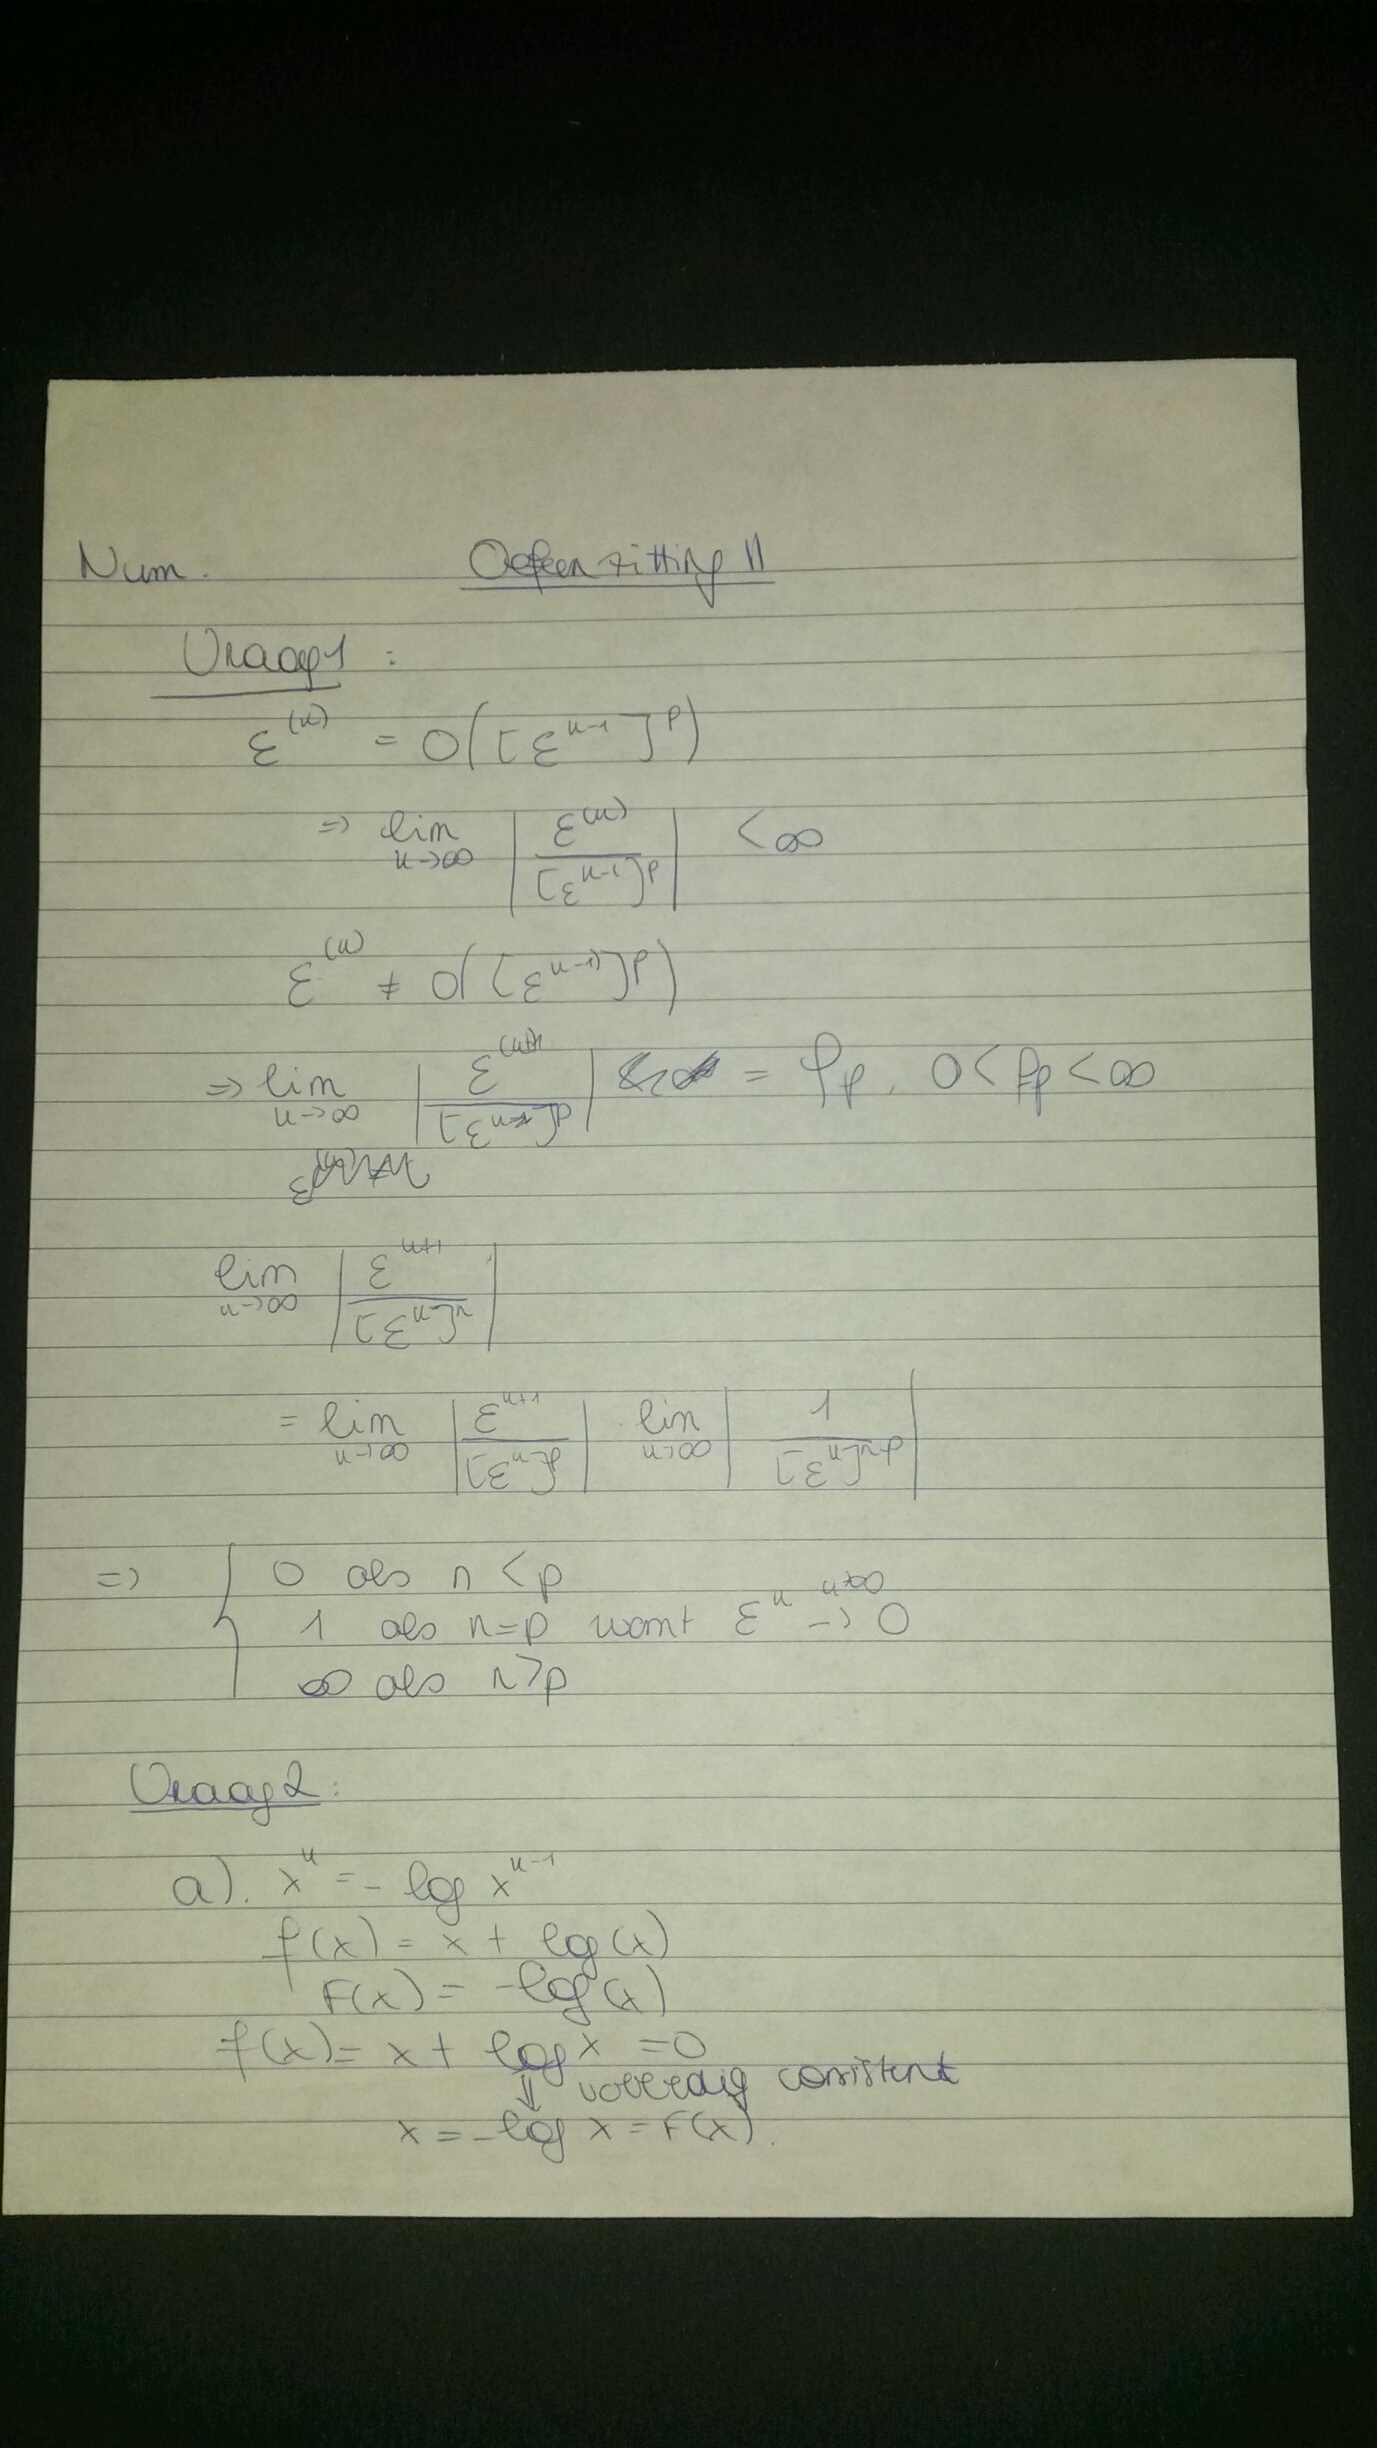 Num. Oefenzitting 11
Vraag 1 :
ε^(n) = O([ε^n-1]^p)
=> lim n->∞ | ε^(n) / [ε^n-1]^p | < ∞
ε^(n) ≠ O([ε^(n-1)]^p)
=> lim n->∞ | ε^(n+1) / [ε^n]^p | = ρp, 0 < ρp < ∞
lim n->∞ | ε^n+1 / [ε^n]^r |
= lim n->∞ | ε^n+1 / [ε^n]^p | . lim n->∞ | 1 / [ε^n]^r-p |
=> { 0 als r < p
1 als r = p want ε^n -> 0 n->∞
∞ als r > p
Vraag 2 :
a). x^n = - log x^n-1
f(x) = x + log(x)
F(x) = -log(x)
f(x) = x + log x = 0
⇓ volledig consistent
x = -log x = F(x).